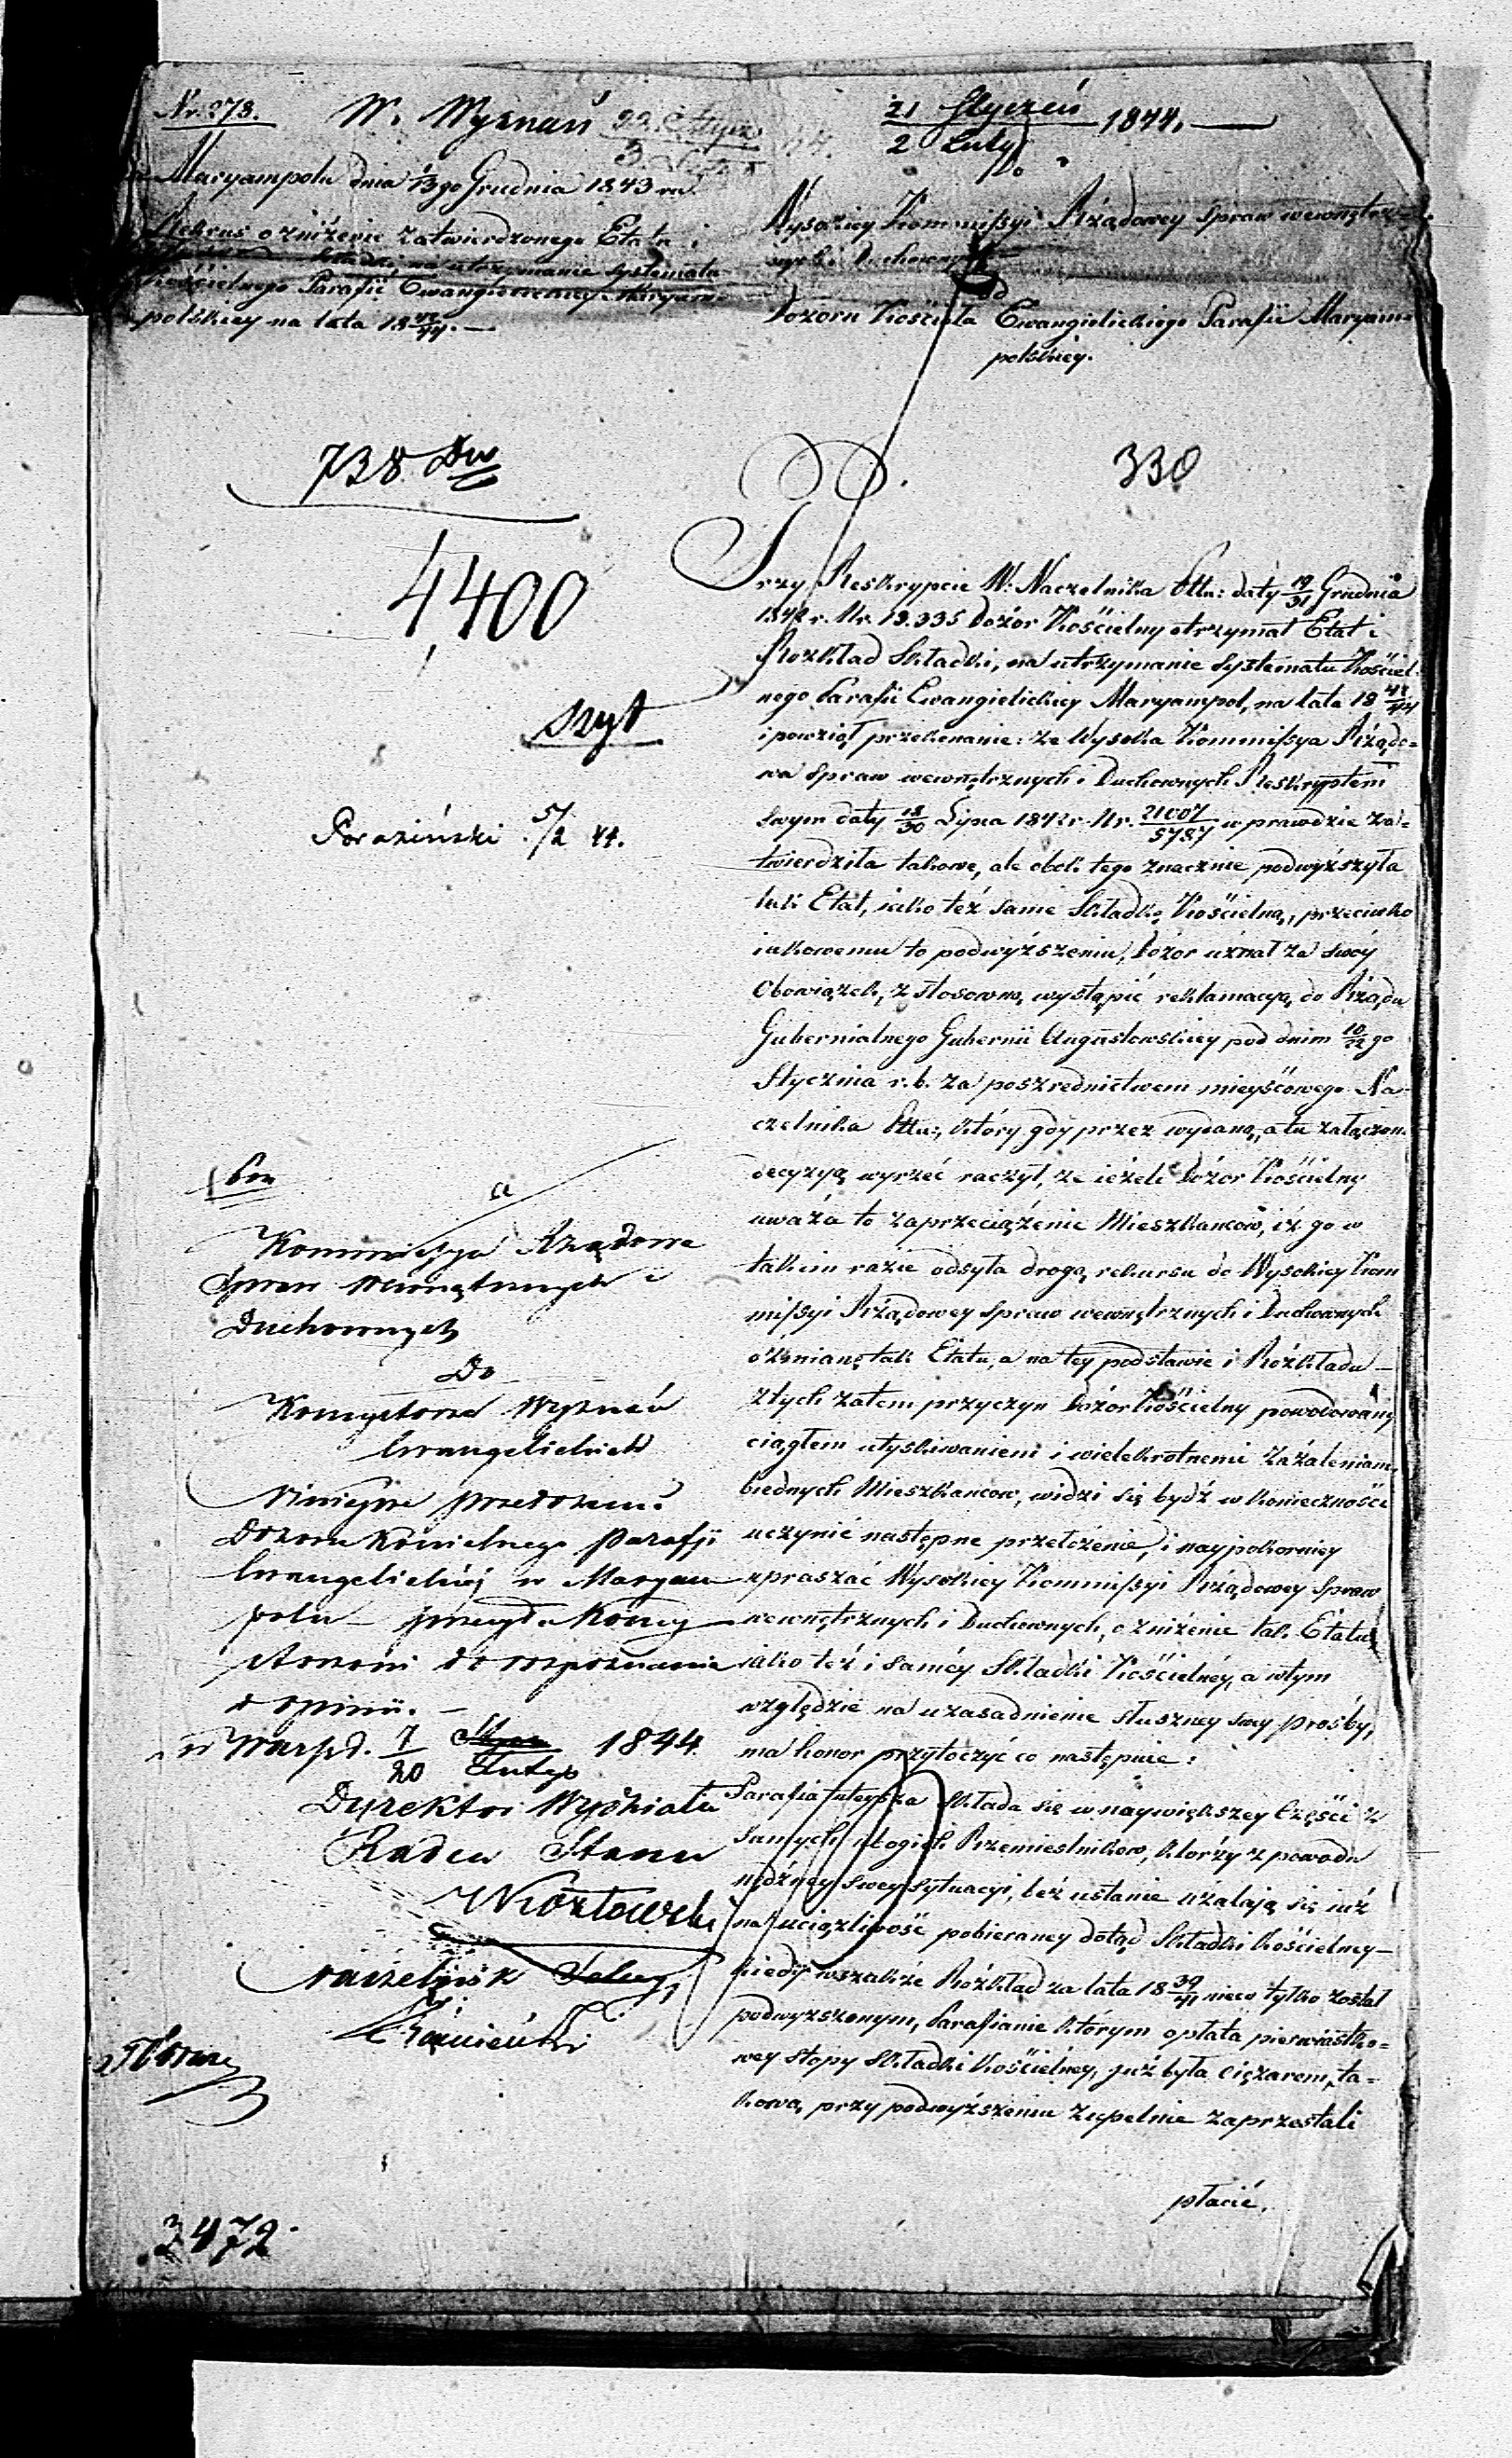 Nr. 273.
W. Wyznań
21 Styczeń
2 Luty 1844.
Maryampolu dnia 13go Grudnia 1843 r.
Rekurs o zniżenie zatwierdzonego Etatu i
Składki na utrzymanie systematu
Kościelnego Parafii Ewangielickiey Maryam-
polskiey na lata 18 42/44. —
Wysokiey Kommissyi Rządowey Spraw wewnętrz-
nych i Duchownych
od
Dozoru Kościoła Ewangielickiego Parafii Maryam-
polskiey.
738
4400
szyt
Poraziński 5/2 44.
330
Przy Reskrypcie W: Naczelnika Pttu: daty 19/31 Grudnia
1842 r. Nr. 19.335 Dozór Kościelny otrzymał Etat i
Rozkład Składki, na utrzymanie Systematu Kościel-
nego Parafii Ewangielickiey Maryampol, na lata 18 42/44
i powziął przekonanie: że Wysoka Kommissya Rządo-
wa Spraw wewnętrznych i Duchownych Reskryptem
swym daty 18/30 Lipca 1842 r. Nr. 21007/5787 w prawdzie za-
twierdziła takowe, ale obok tego znacznie podwyższyła
tak Etat, iako też same Składkę Kościelną, przeciwko
iakowemu to podwyższeniu, Dozór uznał za swóy
Obowiązek, z stosowną wystąpić reklamacyą do Rządu
Gubernialnego Gubernii Augustowskiey pod dniem 10/22 go
Stycznia r. b. za poszrednictwem mieyscowego Na-
czelnika Pttu:, który gdy przez wydaną, a tu załączon.
decyzyą wyrzec raczył, że ieżeli Dozór Kościelny
uważa to za przeciążenie Mieszkańców, iż go w
takim razie odsyła drogą rekursu do Wysokiey Kom
missyi Rządowey Spraw wewnętrznych i Duchownych
o zmianę tak Etatu, a na tey podstawie i Rozkładu —
z tych zatem przyczyn Dozór Kościelny powodowany
ciągłem utyskiwaniem i wielokrotnemi zażaleniam.
biednych Mieszkancow, widzi się bydź w konieczności
uczynić następne przełożenie, i naypokorniey
upraszać Wysokiey Kommissyi Rządowey Spraw
wewnętrznych i Duchownych, o zniżenie tak Etatu
iako też i saméy Składki Kościelnéy, a w tym
względzie na uzasadnienie słuszney swey prośby,
ma honor przytoczyć co następuie:
Parafia tuteysza składa się w naywiększey Części z
samych ubogich Rzemieslnikow, którzy z powodu
nędzney swey sytuacyi, bez ustanie użalają się iuż
na uciążliwość pobieraney dotąd Składki Kościelney —
kiedy wszakże Rozkład za lata 18 39/41 nieco tylko został
podwyzszonym, Parafianie którym opłata pierwiastko-
wey stopy składki Kościelney, już była ciężarem, ta-
kową, przy podwyższeniu zupełnie zaprzestali
płacić,
a
Kommissya Rządowa
Spraw Wewnętrznych i
Duchownych
Do
Konsystorza Wyznań
Ewangelickich
Ninieysze przełożenie
Dozoru Kościelnego Parafji
Ewangelickiéj w Maryam
polu — przesyła Konsy
storzowi do rozpoznania
i opinii. —
w Warsz d. 7/20 Lutego 1844.
Dyrektor Wydziału
Radca Stanu
Kozłowski
Naczelnik
3472